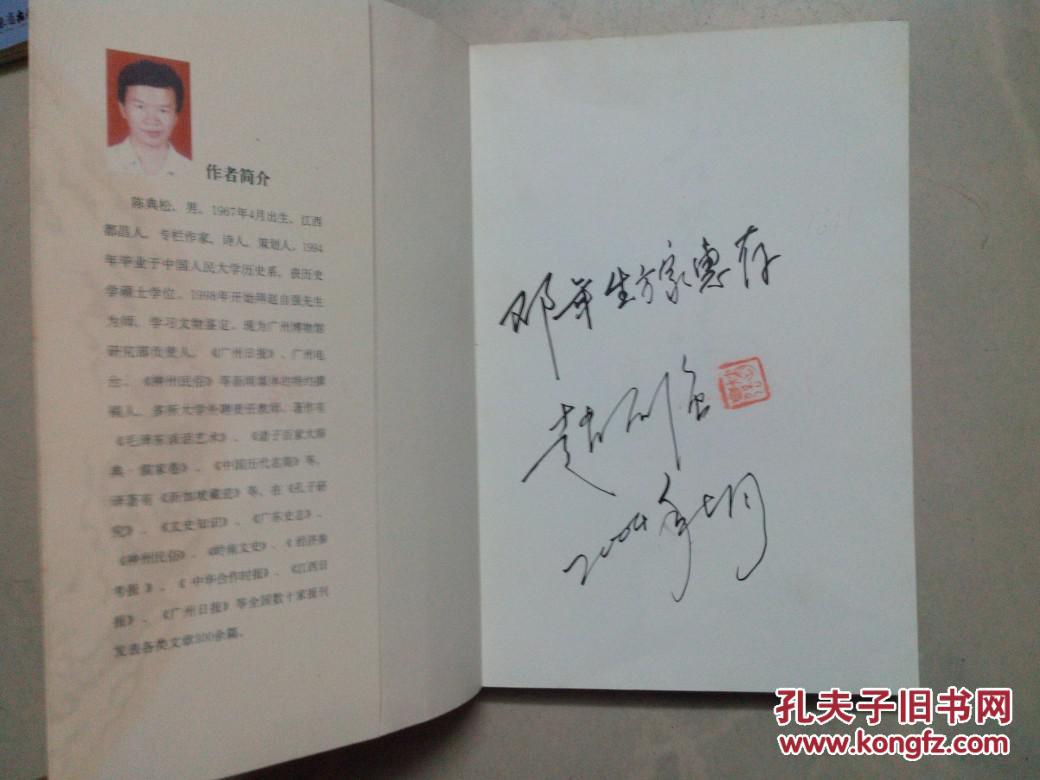 作者简介
陈典松，男，1967年4月出生，江西
都昌人，专栏作家、诗人、策划人。1994
年毕业于中国人民大学历史系，获历史
学硕士学位。1998年开始拜赵自强先生
为师，学习文物鉴定。现为广州博物馆
研究部负责人，《广州日报》、广州电
台、《神州民俗》等新闻媒体
稿人，多所大学外聘责任教师。著作有
《毛泽东谈话艺术》、《诸子百家大辞
典·儒家卷》、《中国历代名窑》等，
译著有《新加坡藏瓷》等，在《孔子研
究》、《文史知识》、《广东史志》、
《神州民俗》、《岭南文史》、《经济参
考报》、《中华合作时报》、《江西日
报》、《广州日报》等全国数十家报刊
发表各类文章300余篇。
邓华生方家惠存
赵自强
2004年七月
孔夫子旧书网
www.kongfz.com